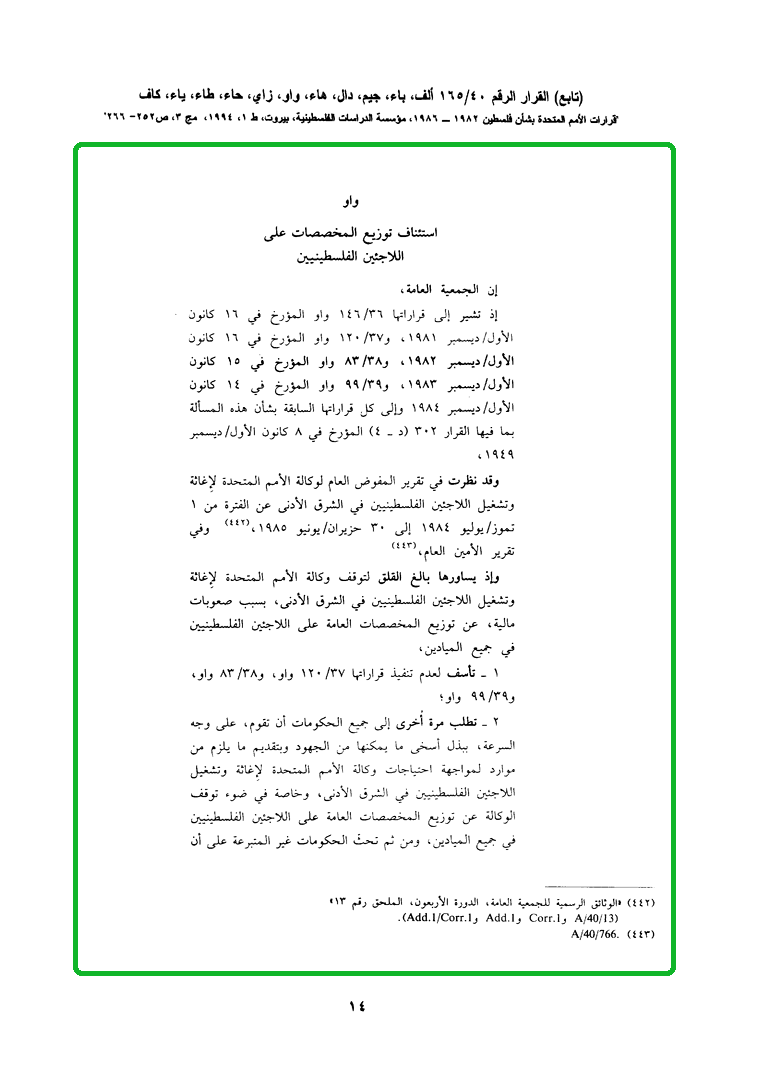 (تابع) القرار الرقم ١٦٥/٤٠ ألف، باء، جيم، دال، هاء، واو، زاي، حاء، طاء، ياء، كاف
"قرارات الأمم المتحدة بشأن فلسطين ١٩٨٢ ــ ١٩٨٦، مؤسسة الدراسات الفلسطينية، بيروت، ط ١، ١٩٩٤، مج ٣، ص٢٥٢- ٢٦٦"
واو
استئناف توزيع المخصصات على
اللاجئين الفلسطينيين
إن الجمعية العامة،
إذ تشير إلى قراراتها ١٤٦/٣٦ واو المؤرخ في ١٦ كانون
الأول/ديسمبر ١٩٨١، و١٢٠/٣٧ واو المؤرخ في ١٦ كانون
الأول/ديسمبر ١٩٨٢، و٨٣/٣٨ واو المؤرخ في ١٥ كانون
الأول/ديسمبر ١٩٨٣، و٩٩/٣٩ واو المؤرخ في ١٤ كانون
الأول/ديسمبر ١٩٨٤ وإلى كل قراراتها السابقة بشأن هذه المسألة
بما فيها القرار ٣٠٢ (د ـ ٤) المؤرخ في ٨ كانون الأول/ديسمبر
١٩٤٩،
وقد نظرت في تقرير المفوض العام لوكالة الأمم المتحدة لإغاثة
وتشغيل اللاجئين الفلسطينيين في الشرق الأدنى عن الفترة من ١
تموز/يوليو ١٩٨٤ إلى ٣٠ حزيران/يونيو ١٩٨٥،(٤٤٢) وفي
تقرير الأمين العام،(٤٤٣)
وإذ يساورها بالغ القلق لتوقف وكالة الأمم المتحدة لإغاثة
وتشغيل اللاجئين الفلسطينيين في الشرق الأدنى، بسبب صعوبات
مالية، عن توزيع المخصصات العامة على اللاجئين الفلسطينيين
في جميع الميادين،
١ ـ تأسف لعدم تنفيذ قراراتها ١٢٠/٣٧ واو، و٨٣/٣٨ واو،
و٩٩/٣٩ واو؛
٢ ـ تطلب مرة أُخرى إلى جميع الحكومات أن تقوم، على وجه
السرعة، ببذل أسخى ما يمكنها من الجهود وبتقديم ما يلزم من
موارد لمواجهة احتياجات وكالة الأمم المتحدة لإغاثة وتشغيل
اللاجئين الفلسطينيين في الشرق الأدنى، وخاصة في ضوء توقف
الوكالة عن توزيع المخصصات العامة على اللاجئين الفلسطينيين
في جميع الميادين، ومن ثم تحثّ الحكومات غير المتبرعة على أن
(٤٤٢) «الوثائق الرسمية للجمعية العامة، الدورة الأربعون، الملحق رقم ١٣»
(A/40/13 وCorr.1 وAdd.1 وAdd.1/Corr.1).
(٤٤٣) A/40/766.
١٤